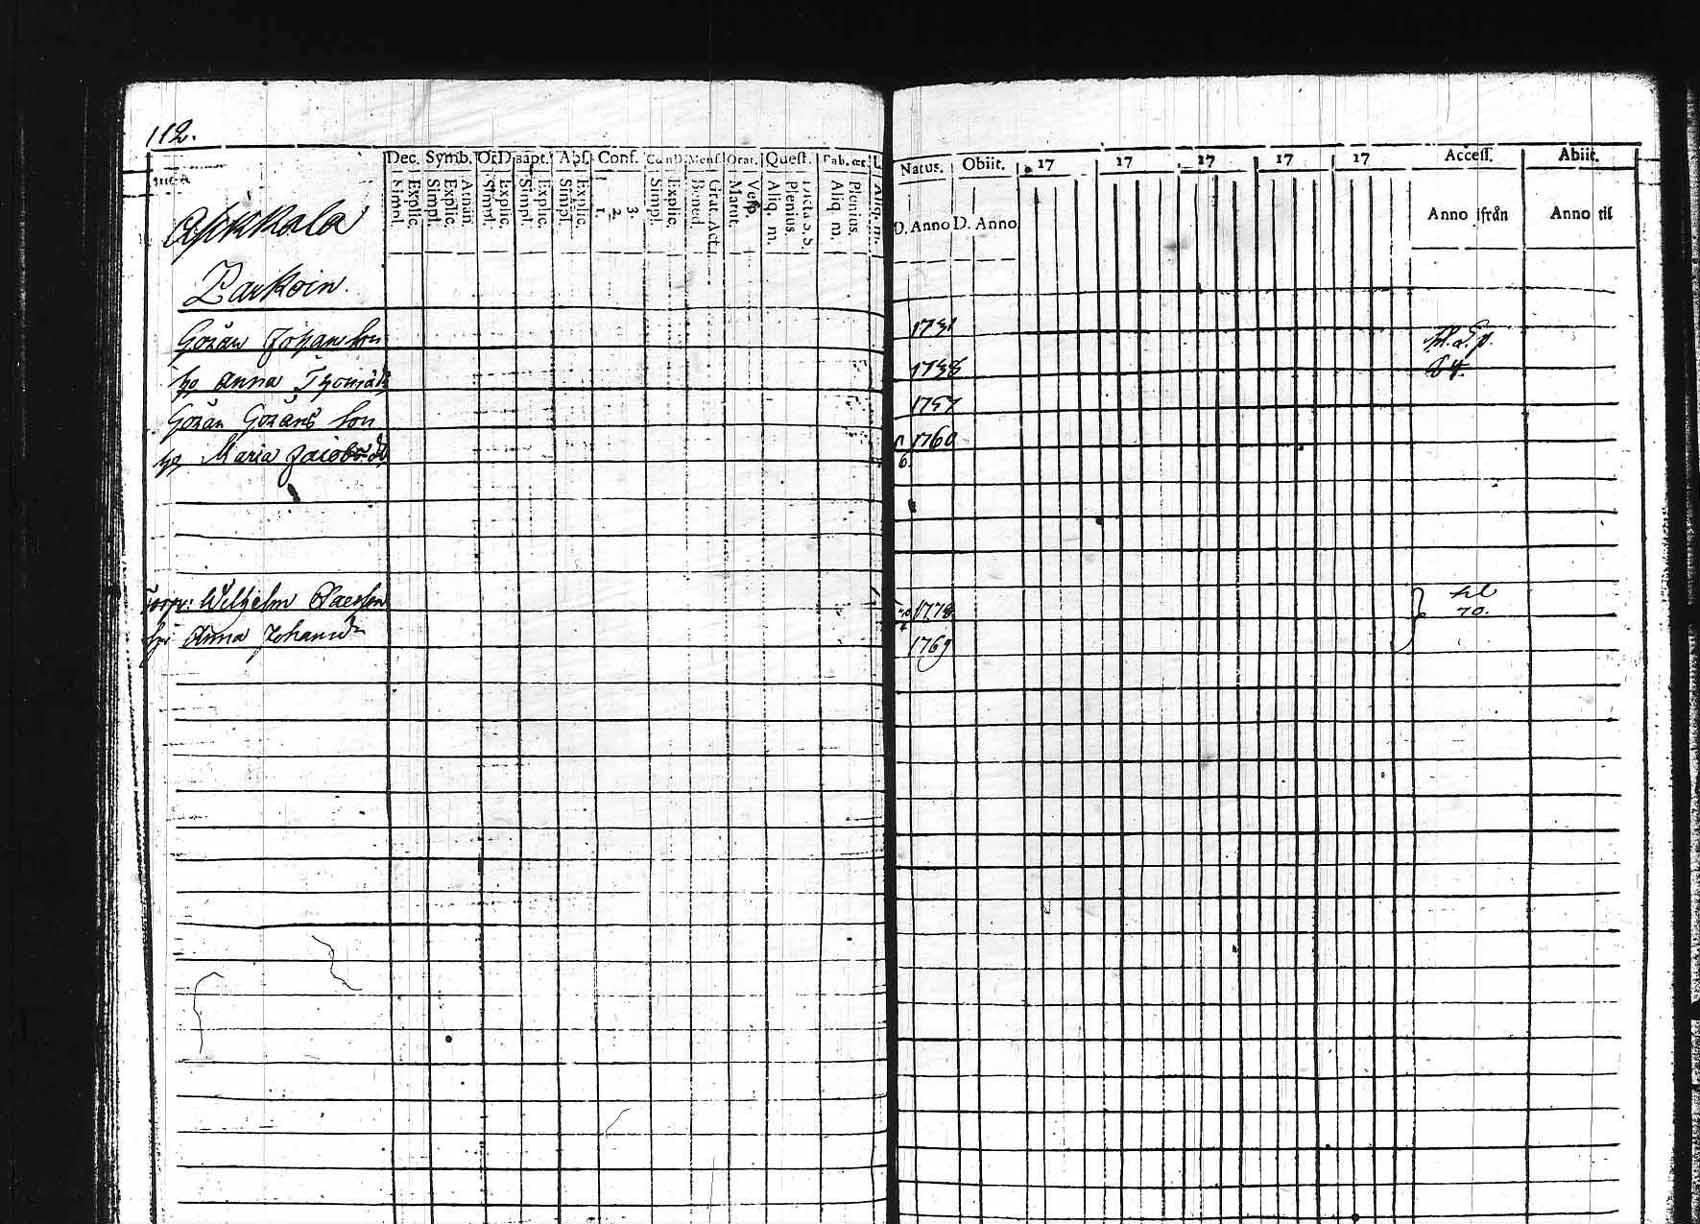 112.
Dec. Symb. Or.D. Bapt. Abs. Conf. Mens. Orat. Quest. Tab. œc. Natus. Obiit. 17 17 17 17 17 Access. Abiit.
Simpl. Explic. Simpl. Explic. Athan. Simpl. Explic. Simpl. Explic. Simpl. Explic. 1. 2. 3. Simpl. Explic. Bened. Grat. Act. Matut. Vesp. Aliq. m. Plenius. Dicta S.S. Aliq. m. Plenius. Aliq. m. D. Anno D. Anno Anno ifrån Anno til
Asikkala
Parkoin.
Göran Johansson 1731
hu Anna Thomæd: 1738 64.
Göran Görans Son 1757
hu Maria Jacobs d: 1760
6.
Wilhelm Claesson 1778 70.
hu Anna Johansd: 1769